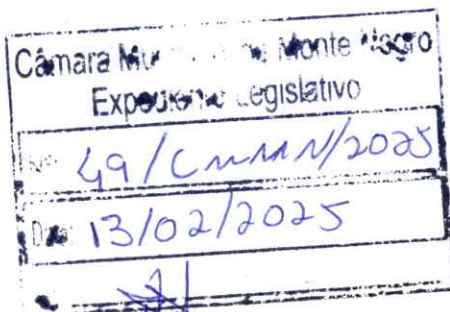 Câmara Mu de Monte Negro
Expediente Legislativo
Nº 49/CMMN/2025
Data 13/02/2025